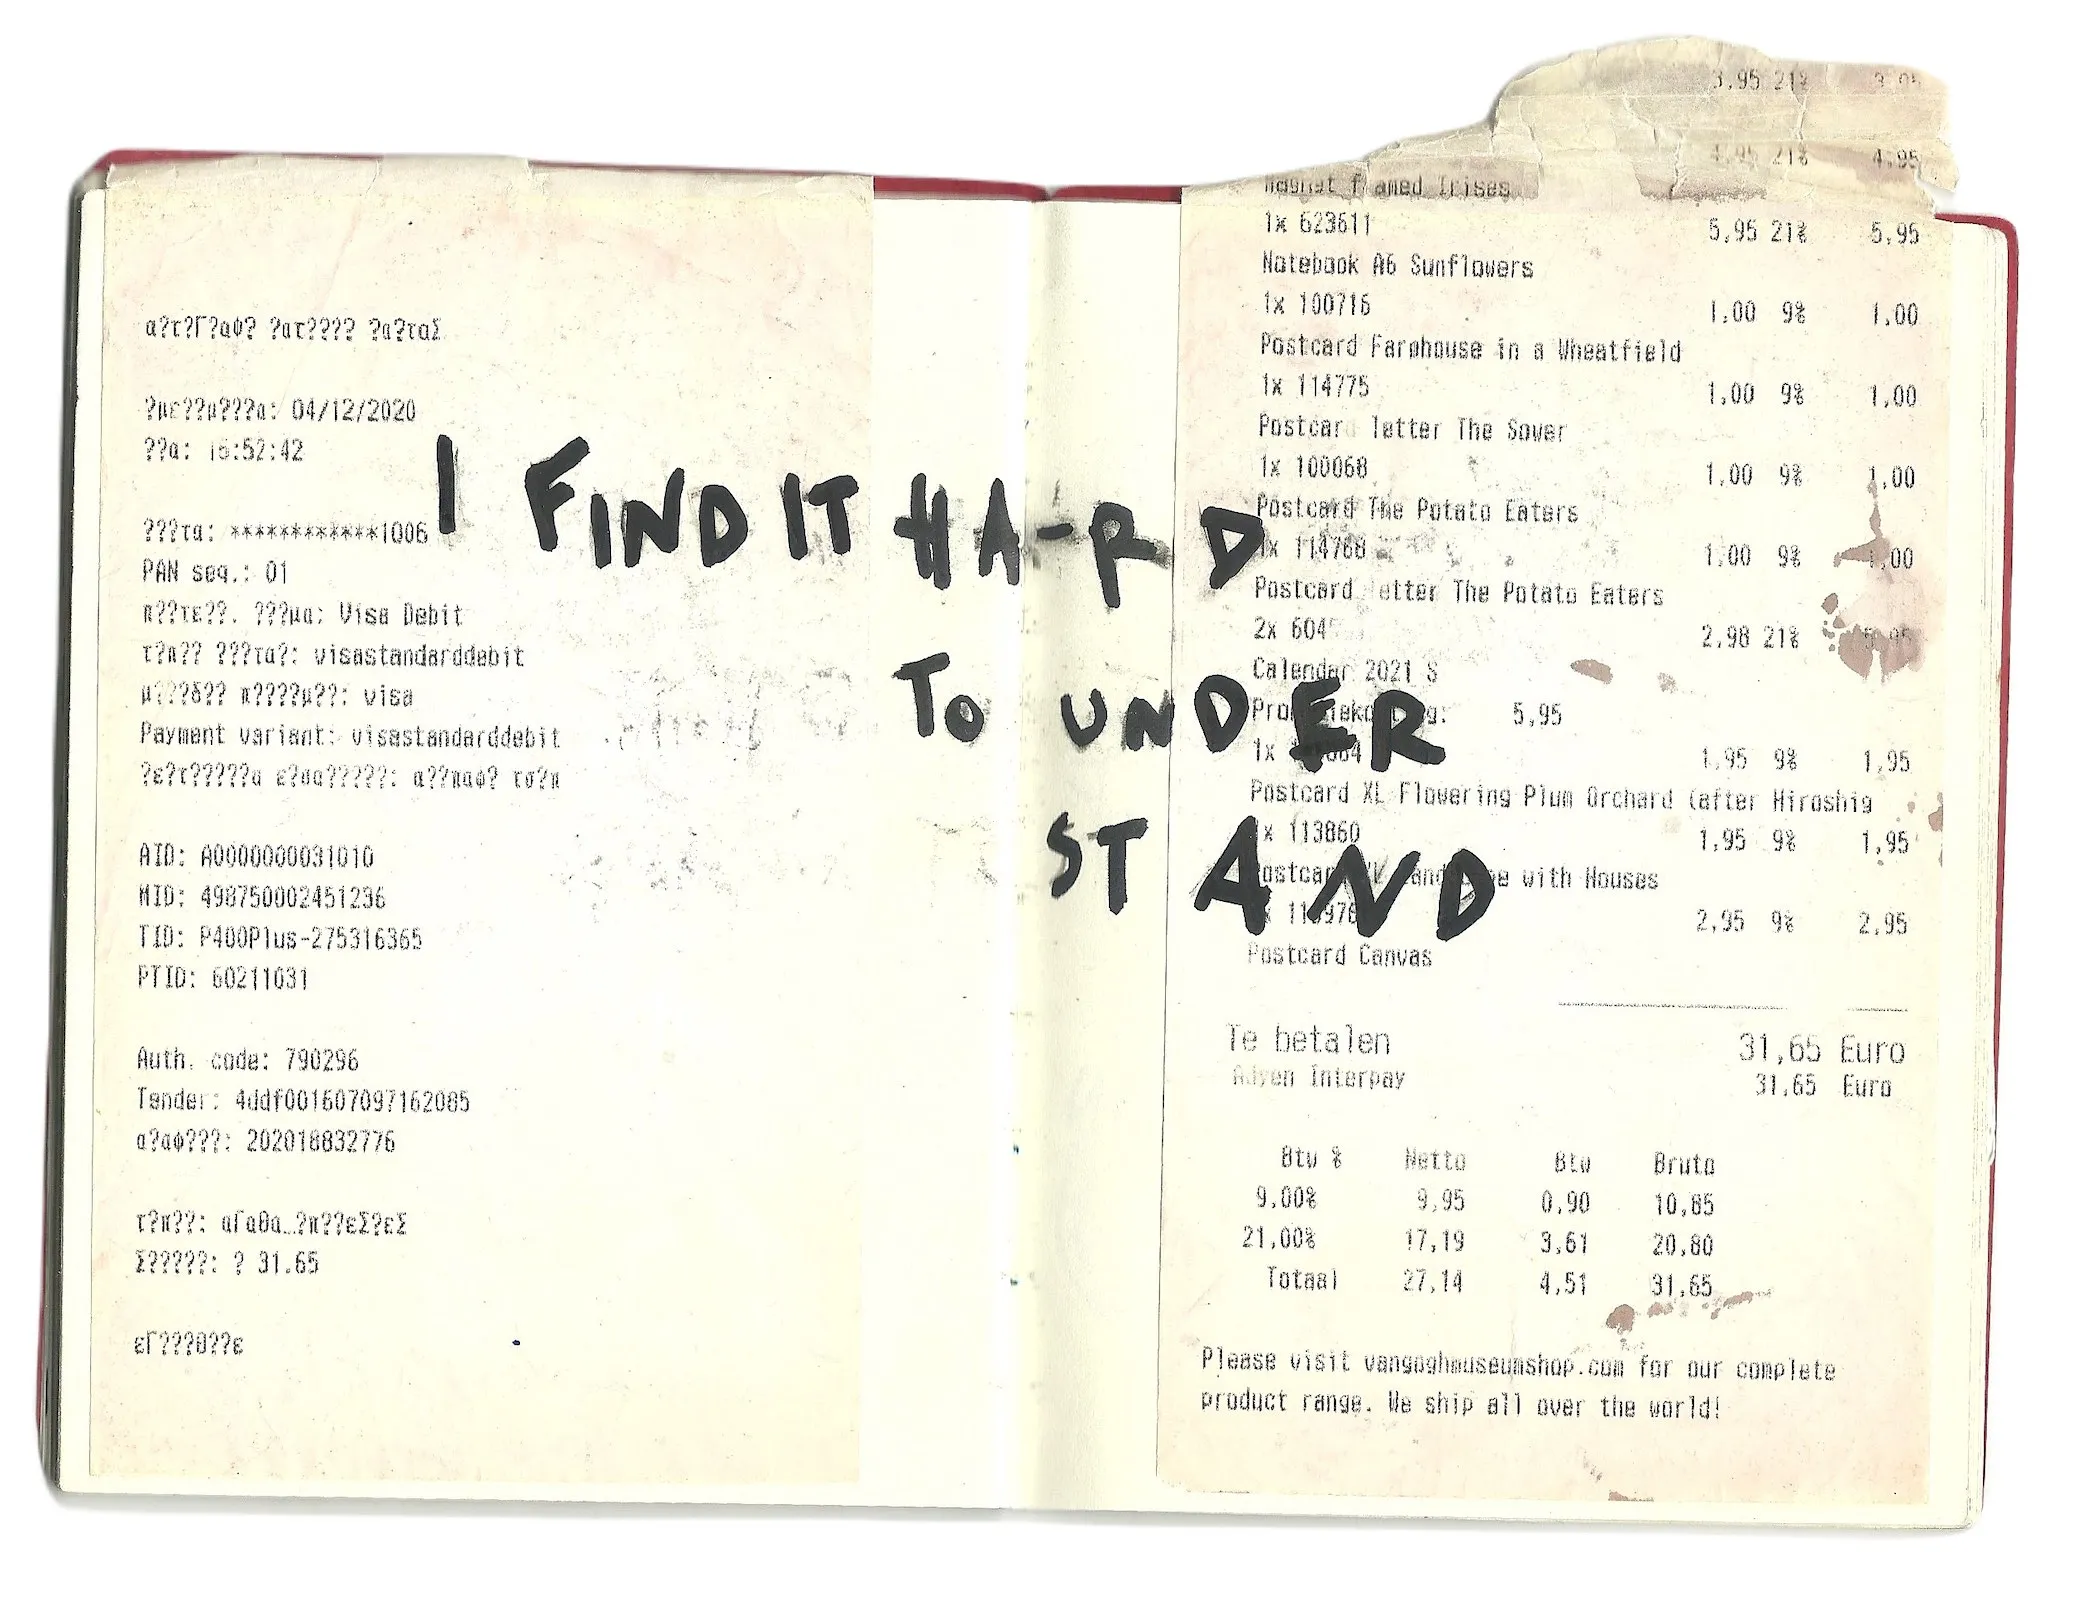 α?τ?Γ?αφ? ?ατ???? ?α?ταΣ
?με??μ???α: 04/12/2020
??α: 15:52:42
???τα: ************1006
PAN seq.: 01
π??τε??. ???μα: Visa Debit
τ?π?? ???τα?: visastandarddebit
μ???δ?? π????μ??: visa
Payment variant: visastandarddebit
?ε?τ?????α ε?σα?????: α??παφ? τσ?π
AID: A0000000031010
MID: 498750002451236
TID: P400Plus-275316365
PTID: 60211031
Auth. code: 790296
Tender: 4ddf001607097162085
α?αφ???: 202018832776
τ?π??: αΓαθα..?π??εΣ?εΣ
Σ?????: ? 31.65
εΓ???θ??ε
I FIND IT HA-RD
TO UNDER
STAND
3,95 21%
4,95 21% 4,95
Magnet framed Irises
1x 623611 5,95 21% 5,95
Notebook A6 Sunflowers
1x 100716 1,00 9% 1,00
Postcard Farmhouse in a Wheatfield
1x 114775 1,00 9% 1,00
Postcard letter The Sower
1x 100068 1,00 9% 1,00
Postcard The Potato Eaters
1x 114768 1,00 9% 1,00
Postcard letter The Potato Eaters
2x 2,98 21%
Calendar 2021 S
5,95
1x 1,95 9% 1,95
Postcard XL Flowering Plum Orchard (after Hiroshig
1x 113860 1,95 9% 1,95
Postcard with Houses
2,95 9% 2,95
Postcard Canvas
Te betalen 31,65 Euro
Adyen Interpay 31,65 Euro
Btw % Netto Btw Bruto
9,00% 9,95 0,90 10,85
21,00% 17,19 3,61 20,80
Totaal 27,14 4,51 31,65
Please visit vangoghmuseumshop.com for our complete
product range. We ship all over the world!